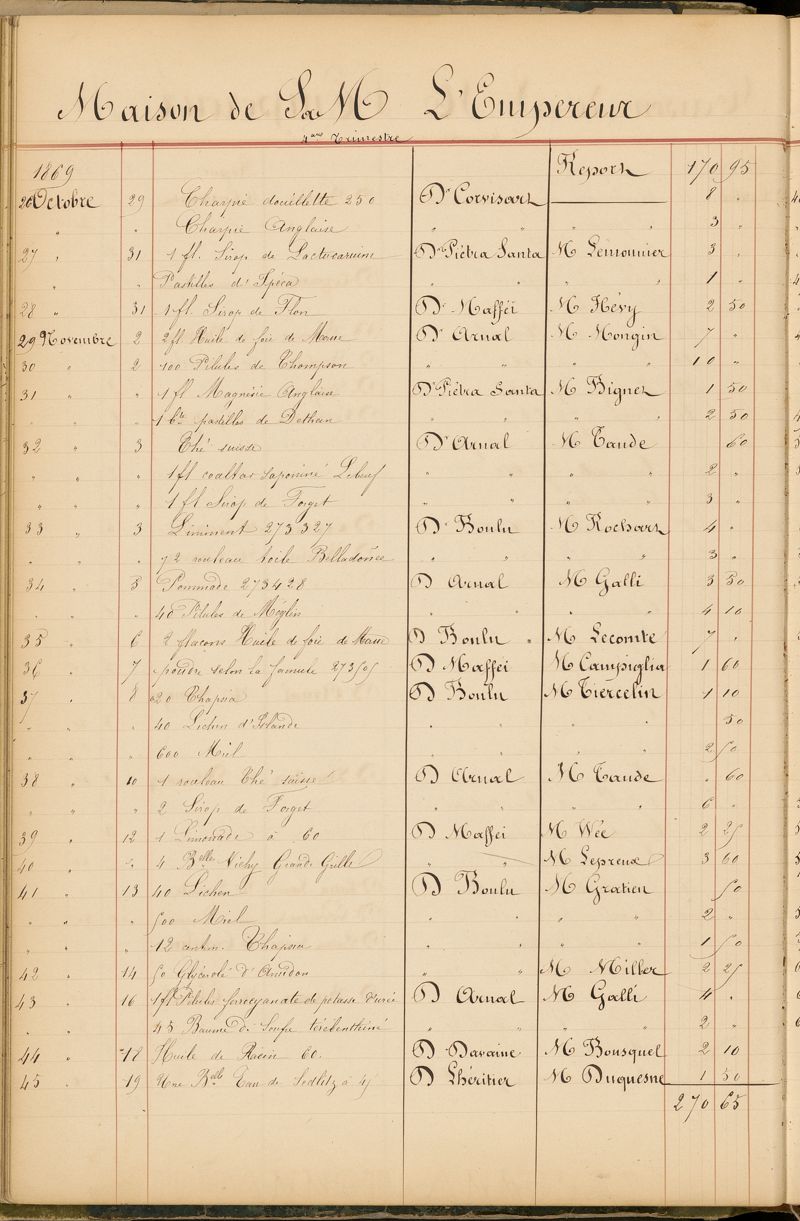 Maison de S.M L'Empereur
4ème Trimestre
1869 Report 170 95
26 Octobre 29 Charpie douillette 250 Dr Corvisart 8 "
" " Charpie Anglaise " " 3 "
27 " 31 1 fl. Sirop de Lactucarium Dr Piétra Santa M Lemonnier 3 "
" Pastilles d'Ipéca " " " " 1 "
28 " 31 1 fl. Sirop de Flon D Mafféi M Hévy 2 50
29 Novembre 2 2 fl Huile de foie de Morue D Arnal M Mongin 7 "
30 " 2 100 Pilules de Thompson " " " " 10 "
31 " " 1 fl Magnésie Anglaise Dr Piétra Santa M Bignet 1 50
" 1 bte pastilles de Dethan " " 2 50
32 " 3 Thé suisse D Arnal M Tande 60
" " " 1 fl coaltar saponiné Lebeuf " " " " 2 "
" " " 1 fl Sirop de Forget " " " " 3 "
33 " 3 Liniment 273327 D Boulu M Rochart 4 "
" " " 1/2 rouleau toile Belladonée " " " " 3 "
34 " 3 Pommade 273428 D Arnal M Galli 3 30
" " " 40 Pilules de Méglin " " " " 4 10
35 " 6 2 flacons Huile de foie de Morue D Boulu " M Lecomte 7 "
36 " 7 poudre selon la formule 273505 D Maffei M Campiglia 1 60
37 " 8 020 Thapsia D Boulu M Tiercelin 1 10
" " 40 Lichen d'Islande " " " " 50
" " " 600 Miel " " " " 2 50
38 " 10 1 rouleau Thé suisse D Arnal M Tande " 60
" " " 2 Sirop de Forget " " " " 6 "
39 " 12 1 Limonade à 60 D Maffei M Wée 2 25
40 " " 4 Belle Vichy Grande Grille " " M Lepreux 3 60
41 " 13 40 Lichen D Boulu M Gratien 50
" " " 500 Miel " " " " 2 "
" " " 12 centim. Thapsia " " " " 1 50
42 " 14 50 Glycérolé d'Amidon " " M Miller 2 25
43 " 16 1 fl Pilules ferrocyanate de potasse d'urée D Arnal M Galli 4 "
" " 45 Baume de Soufre térébenthiné " " " " 2 "
44 " 18 Huile de Ricin 60 D Davaine M Bousquel 2 10
45 " 19 Une Belle Eau de Sedlitz à 45 D Lhéritier M Duquesne 1 50
270 65